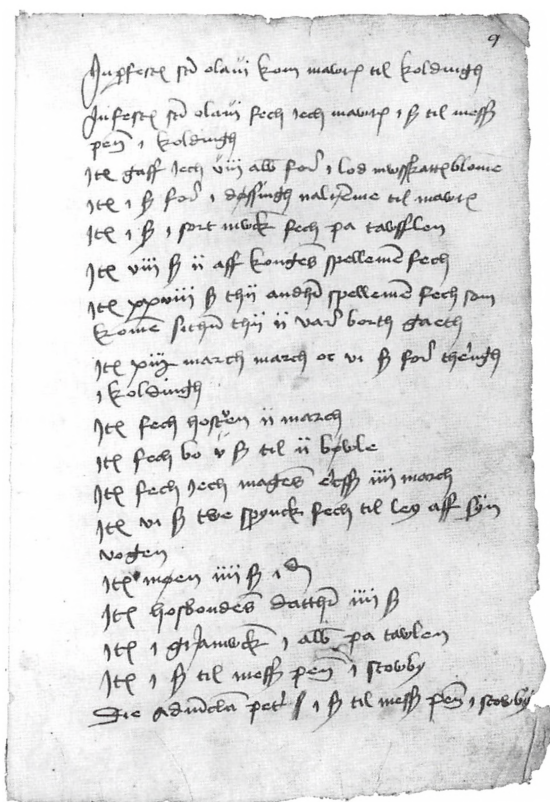 9
In profesto sti olaui kom mawrs til koldingh
In festo sti olaui fech iech mawrs i ß til mess
pen i koldingh
Itē gaff iech viii alb for i lod mwskatteblome
Itē i ß for i døssingh naliReme til mawrs
Itē i ß i sort mwck fech pa tawfflen
Itē viii ß ii aff konges spellemē fech
Itē xxviii ß thii andhr spellemē fech som
komē sithn thii ii var borth gaeth
Itē march march oc vi ß for
i koldingh
Itē fech hosten ii march
Itē fech bo v ß til ii bowle
Itē fech iech mages iiii march
Itē vi ß twe spynck fech til ley aff syn
vogen
Itē møen iiii ß i
Itē hosbondes datthr iiii ß
Itē i gramwck i alb pa tawlen
Itē i ß til mess pen i stowby
Die aduincla petri i ß til mess pen i stowby